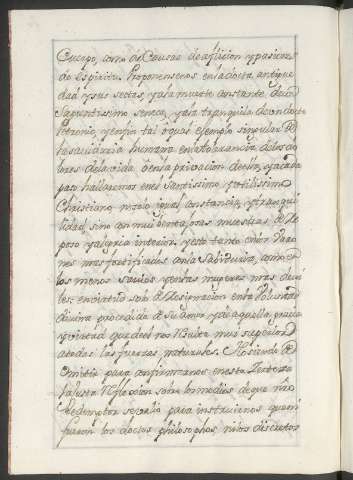 Cuerpo, como de Causas de aflicion y pasiones
de Espiritu. Proponensenos en la docta antigue
dad y sus sectas, ya la muerte constante de un
Sapientissimo Seneca, ya la tranquila de un docto
Petronio, y en fin tal ô qual exemplo singular de
la sauiduria humana en la tolerancia de los do
lores de la vida, ô en la priuacion de ella, y a cada
paso hallaremos en el Santissimo y utilissimo
Christiano no solo igual constancia, y tranqui
lidad sino con mui ventajosas muestras de Re
poso y alegria interior, y esto tanto en los Varo
nes mas fortificados con la Sabiduria, como en
los menos sauios y en las mugeres mas debi
les, en virtud solo de Resignacion en la Voluntad
diuina procedida de su Amor y de aquella, gracia
y quietud que de el nos Resulta mui superior
a todas las fuerzas naturales. No siendo de
omitir para confirmarnos en esta Certeza
la justa Reflexion sobre los medios de que nro
Redemptor se valio para instruirnos, que ni
fueron los doctos philosophos, ni los discretos